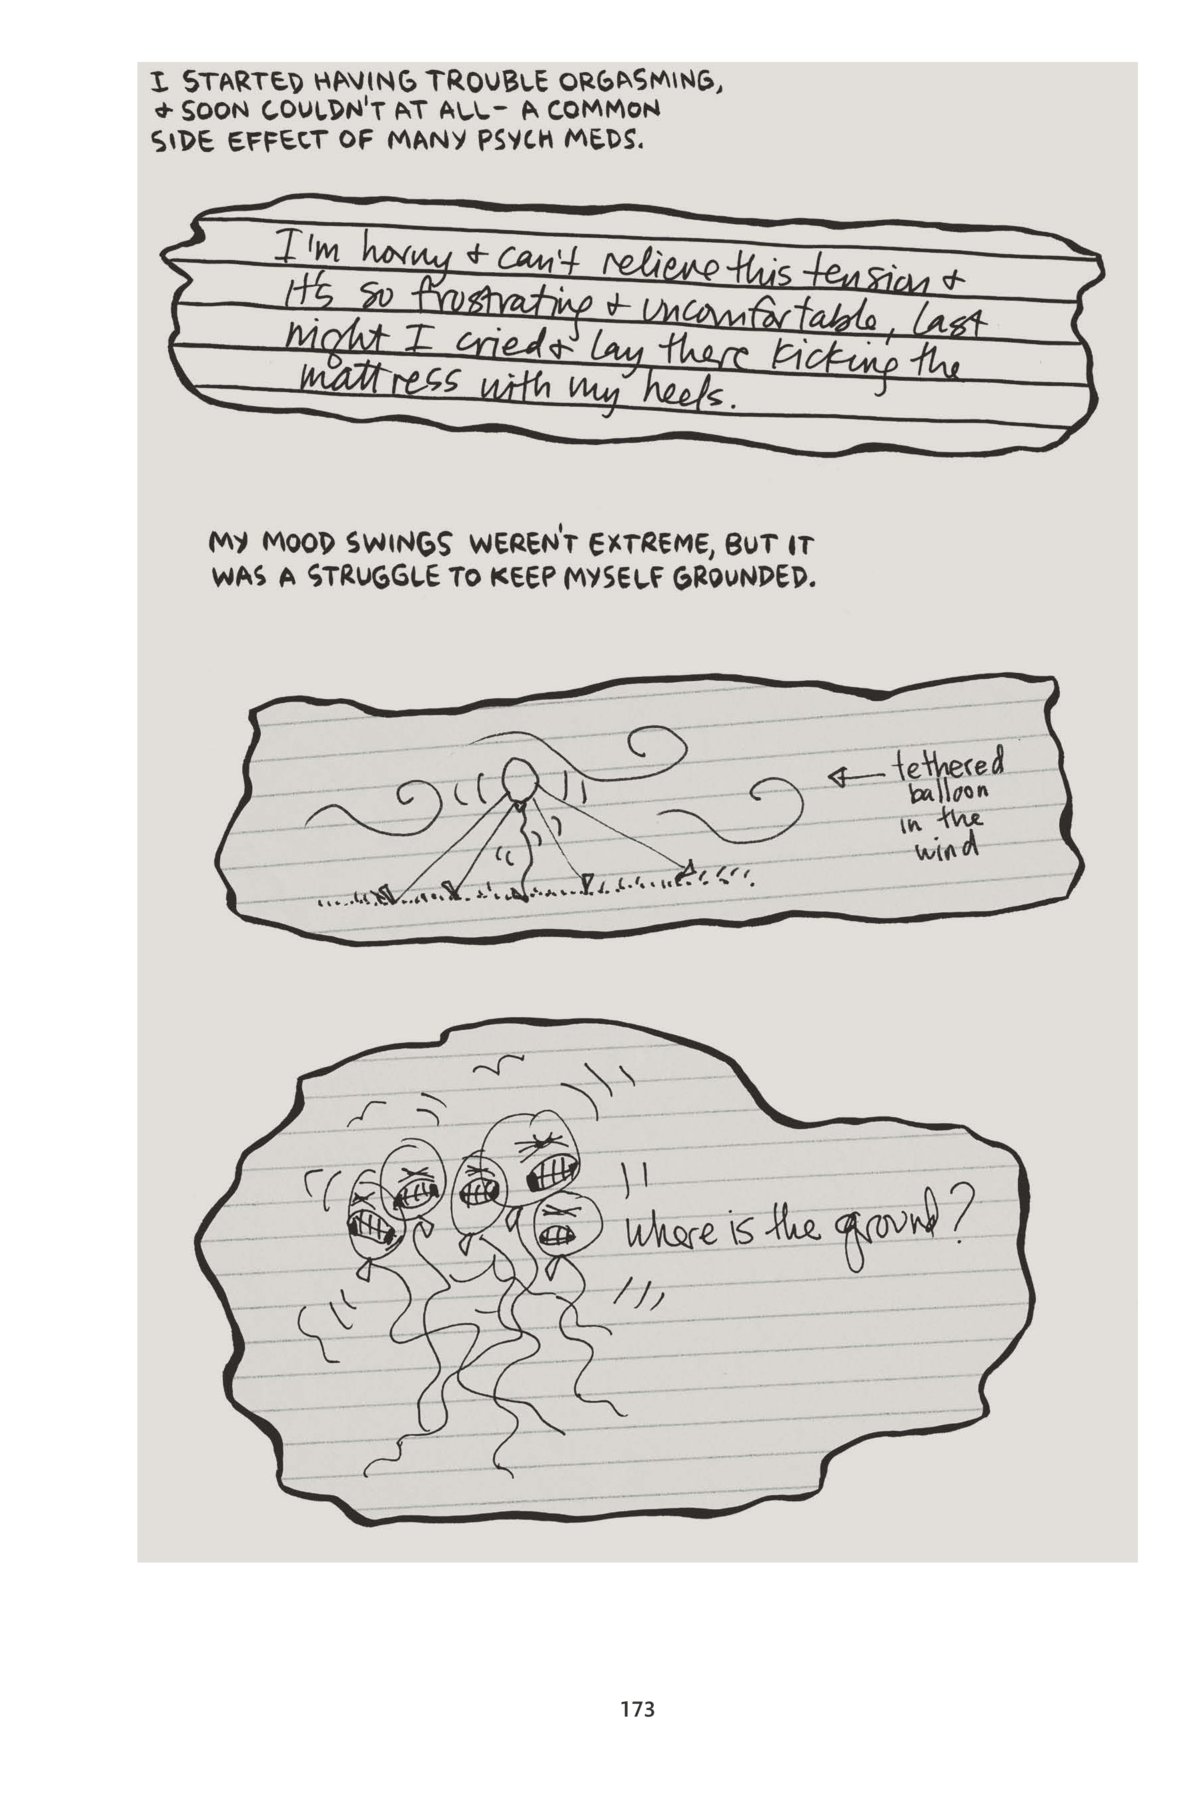 I STARTED HAVING TROUBLE ORGASMING,
& SOON COULDN'T AT ALL - A COMMON
SIDE EFFECT OF MANY PSYCH MEDS.
I'm horny & can't relieve this tension &
it's so frustrating & uncomfortable, last
night I cried & lay there kicking the
mattress with my heels.
MY MOOD SWINGS WEREN'T EXTREME, BUT IT
WAS A STRUGGLE TO KEEP MYSELF GROUNDED.
tethered
balloon
in the
wind
where is the ground?
173